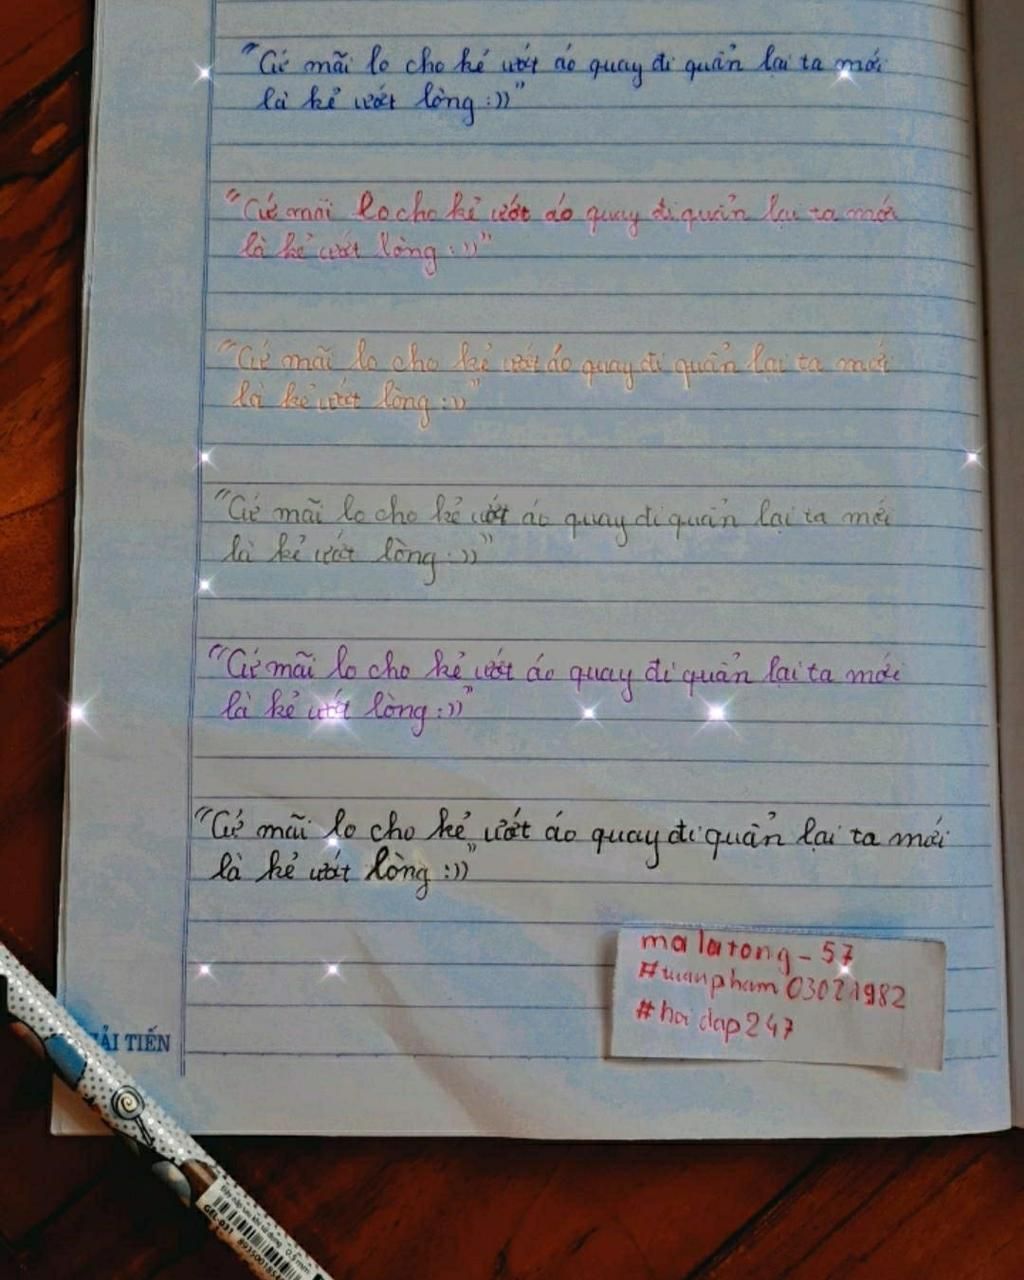 "Cứ mãi lo cho kẻ ướt áo quay đi quẩn lại ta mới
là kẻ ướt lòng :))"
"Cứ mãi lo cho kẻ ướt áo quay đi quẩn lại ta mới
là kẻ ướt lòng :))"
"Cứ mãi lo cho kẻ ướt áo quay đi quẩn lại ta mới
là kẻ ướt lòng :))"
"Cứ mãi lo cho kẻ ướt áo quay đi quẩn lại ta mới
là kẻ ướt lòng :))"
"Cứ mãi lo cho kẻ ướt áo quay đi quẩn lại ta mới
là kẻ ướt lòng :))"
"Cứ mãi lo cho kẻ ướt áo quay đi quẩn lại ta mới
là kẻ ướt lòng :))"
malatong - 57
#tuanpham03021982
#hoidap247
ẢI TIẾN
GEL-031
0.5mm